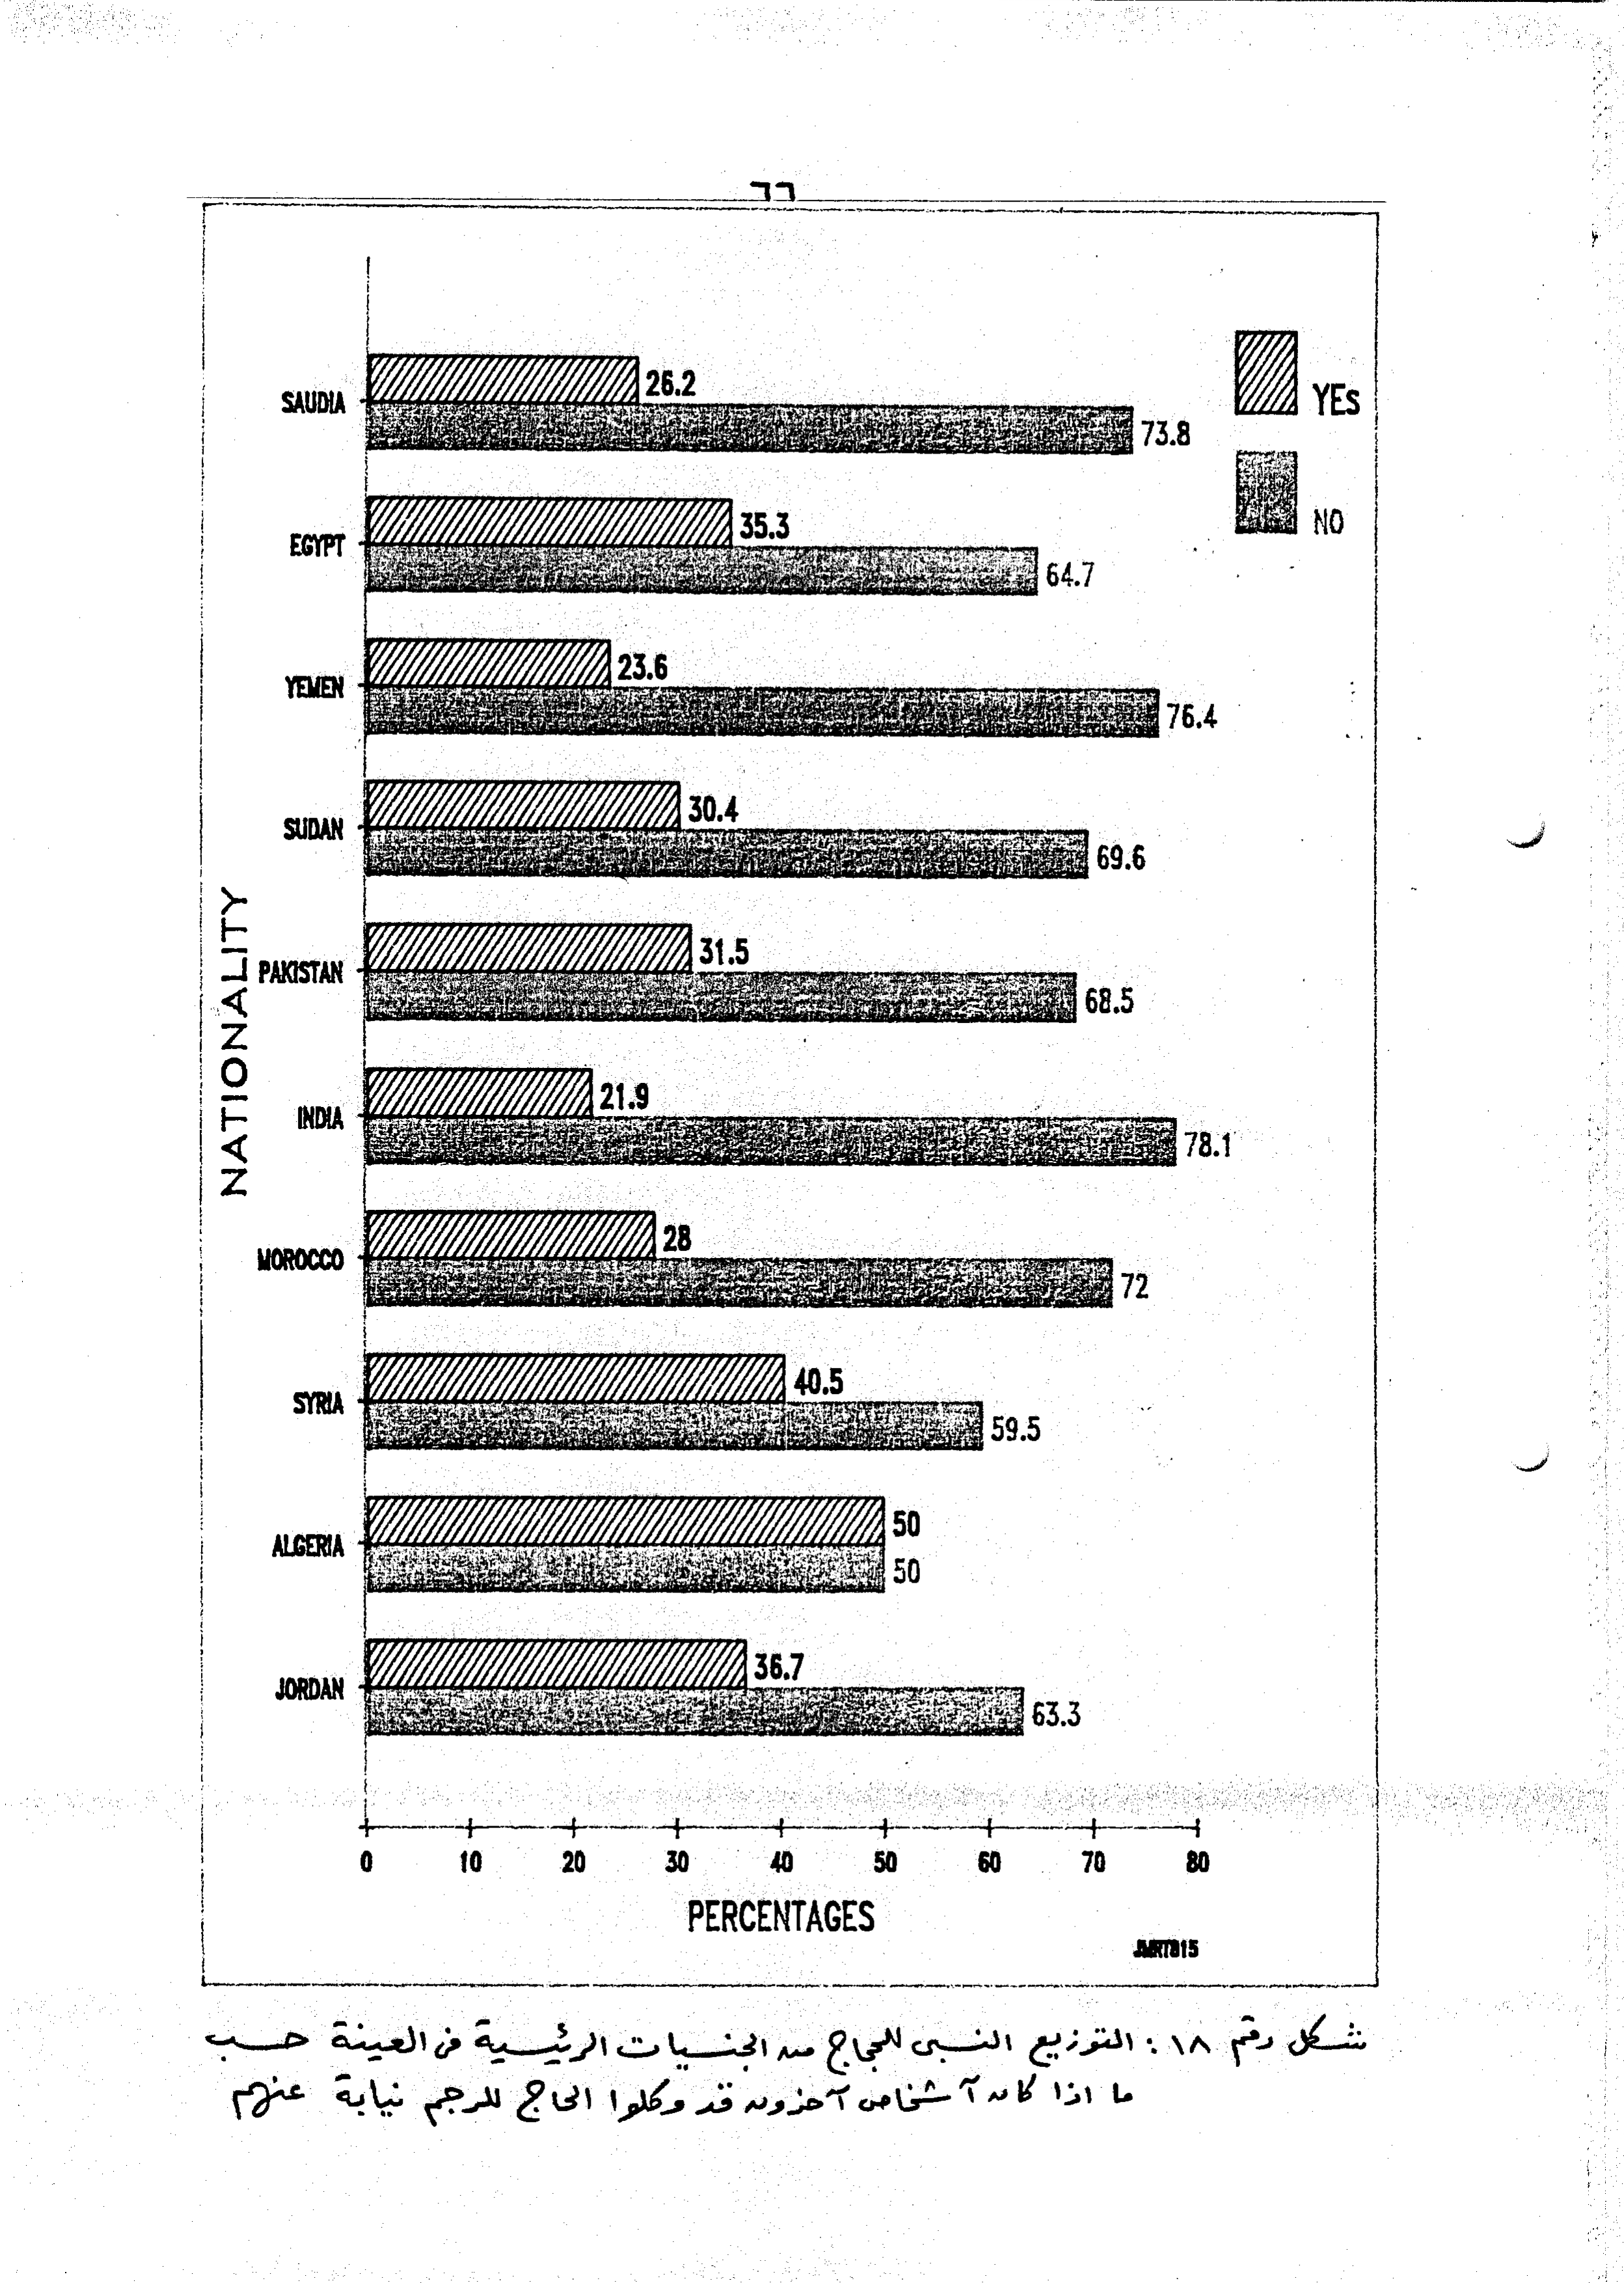 ٦٦
YEs
NO
SAUDIA
26.2
73.8
EGYPT
35.3
64.7
YEMEN
23.6
76.4
SUDAN
30.4
69.6
PAKISTAN
31.5
68.5
INDIA
21.9
78.1
MOROCCO
28
72
SYRIA
40.5
59.5
ALGERIA
50
50
JORDAN
36.7
63.3
NATIONALITY
0 10 20 30 40 50 60 70 80
PERCENTAGES
شكل رقم ١٨ : التوزيع النسبى للحجاج من الجنسيات الرئيسية فى العينة حسب
ما اذا كان آشخاص آخرون قد وكلوا الحاج للرجم نيابة عنهم